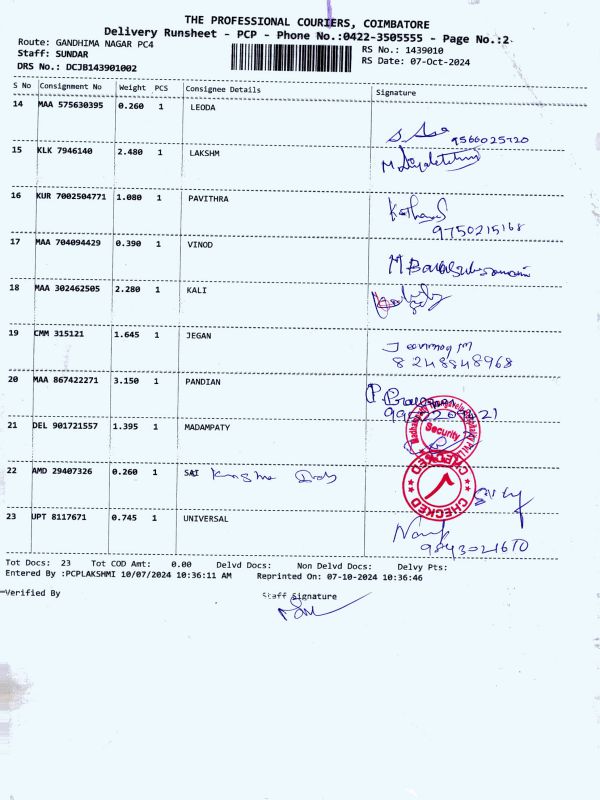 THE PROFESSIONAL COURIERS, COIMBATORE
Delivery Runsheet - PCP - Phone No.:0422-3505555 - Page No.:2
Route: GANDHIMA NAGAR PC4
Staff: SUNDAR
DRS No.: DCJB143901002
RS No.: 1439010
RS Date: 07-Oct-2024
S No Consignment No Weight PCS Consignee Details Signature
14 MAA 575630395 0.260 1 LEODA
9566025720
15 KLK 7946140 2.480 1 LAKSHM
16 KUR 7002504771 1.080 1 PAVITHRA
9750215168
17 MAA 704094429 0.390 1 VINOD
18 MAA 302462505 2.280 1 KALI
19 CMM 315121 1.645 1 JEGAN
8248848968
20 MAA 867422271 3.150 1 PANDIAN
21 DEL 901721557 1.395 1 MADAMPATY
Security
22 AMD 29407326 0.260 1 SAI
CHECKED
23 UPT 8117671 0.745 1 UNIVERSAL
Tot Docs: 23 Tot COD Amt: 0.00 Delvd Docs: Non Delvd Docs: Delvy Pts:
Entered By :PCPLAKSHMI 10/07/2024 10:36:11 AM Reprinted On: 07-10-2024 10:36:46
Verified By Staff Signature